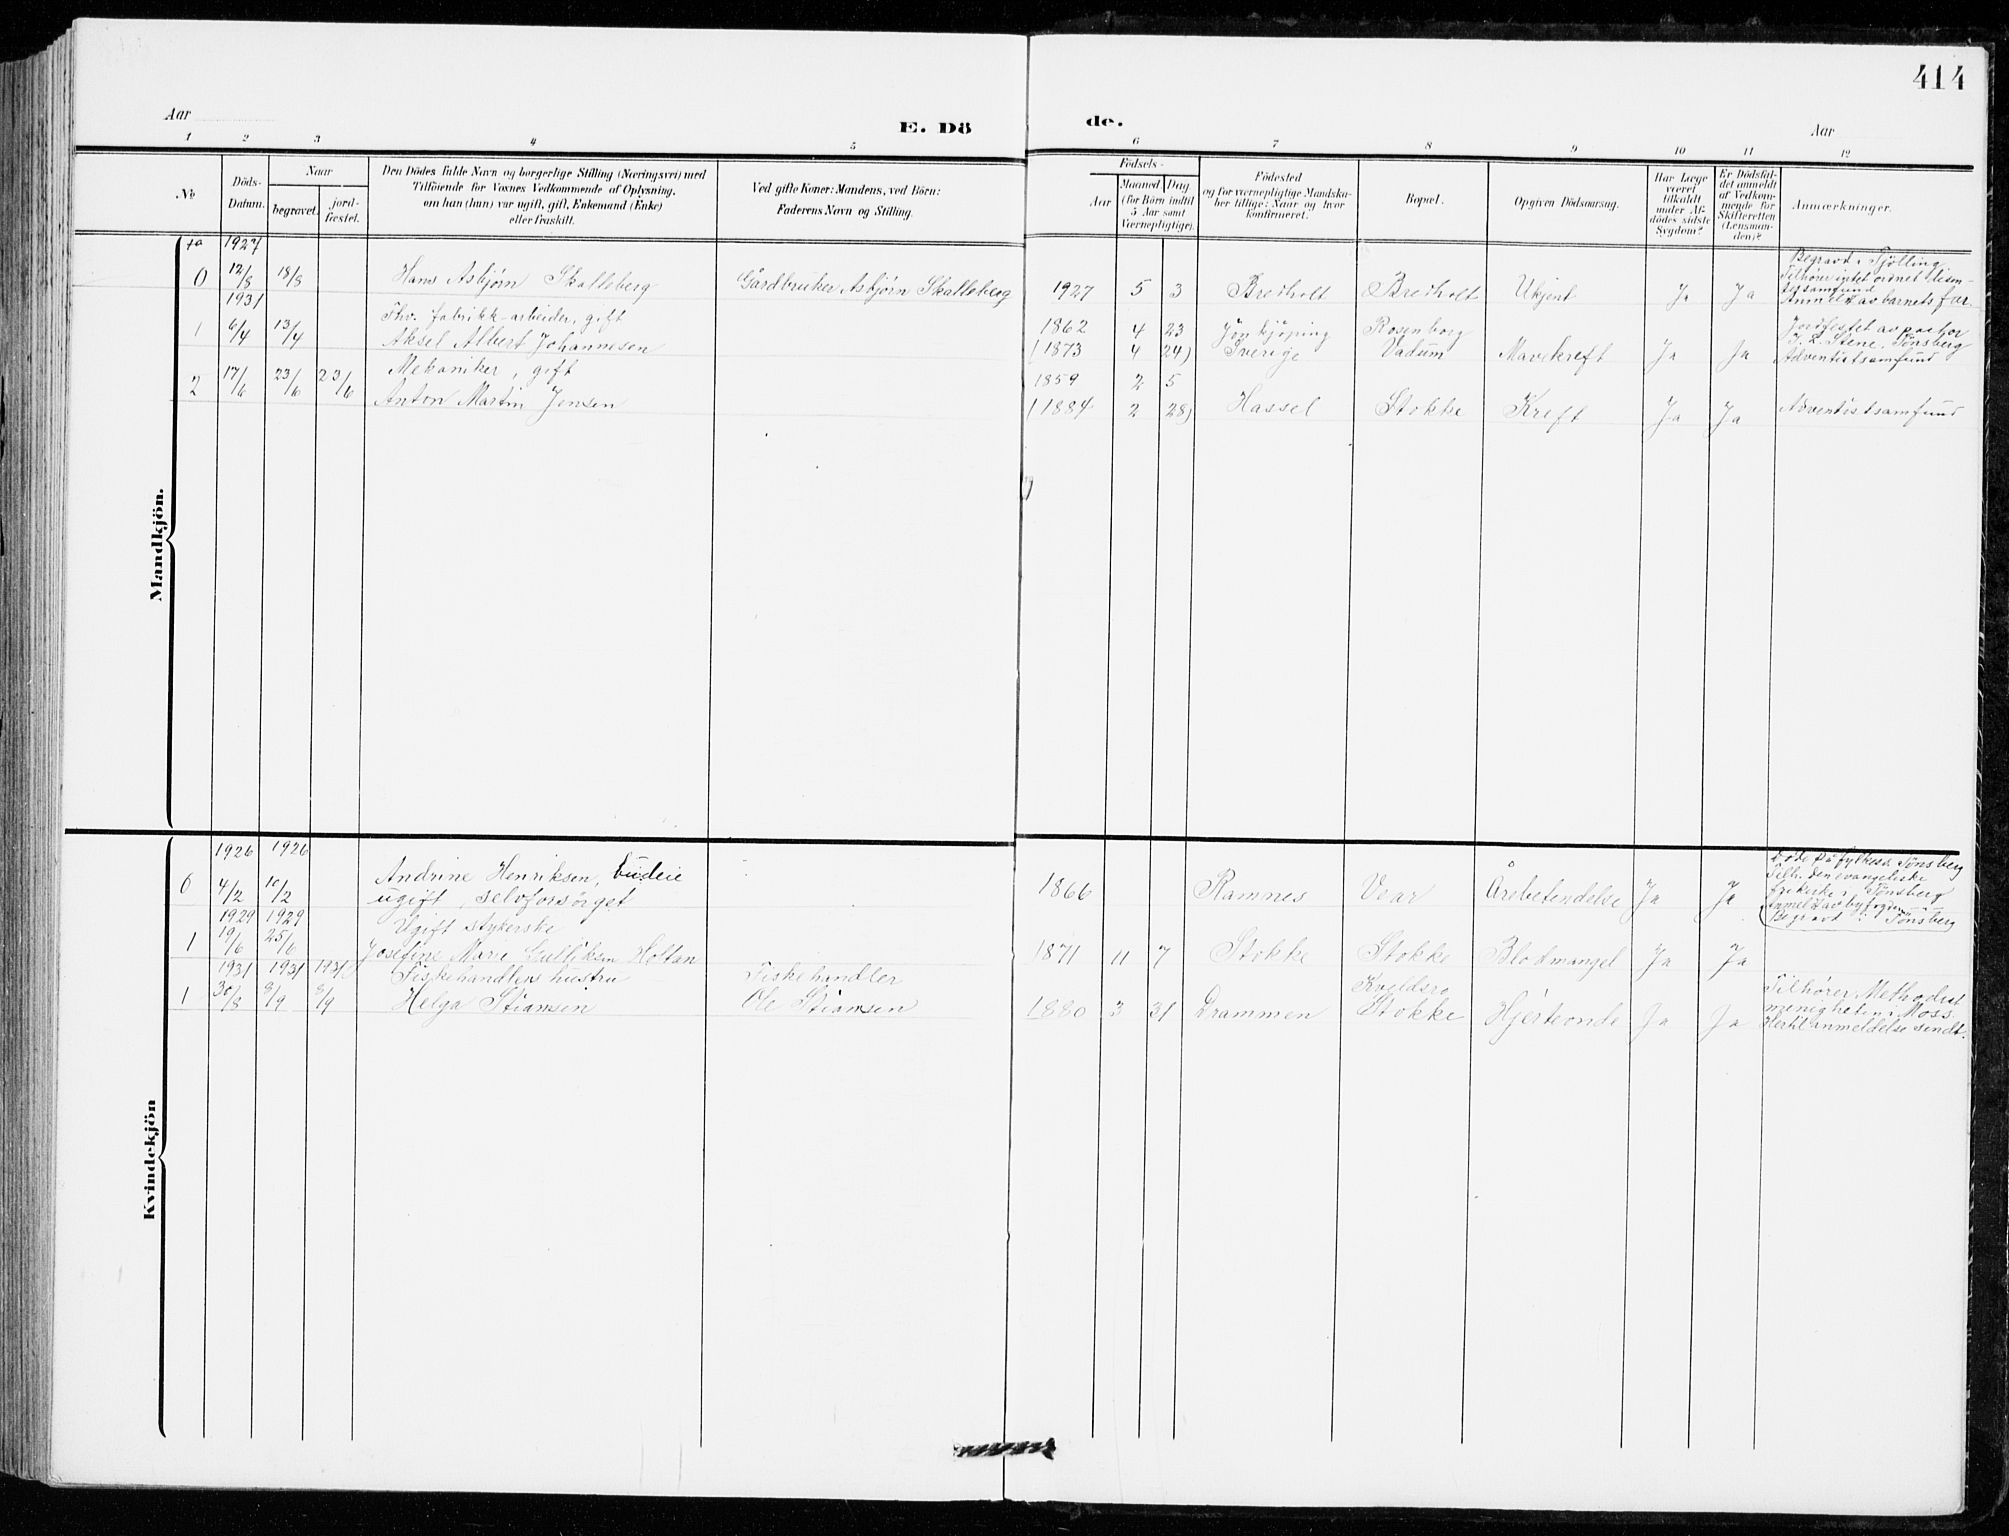 414
Aar
E. Dö
de.
Aar
1 2 3 4 5 6 7 8 9 10 11 12
No
Döds-
Datum.
Naar
begravet.
jord-
fæstet.
Den Dödes fulde Navn og borgerlige Stilling (Næringsvei) med
Tilföiende for Voxnes Vedkommende af Oplysning,
om han (hun) var ugift, gift, Enkemand (Enke)
eller fraskilt.
Ved gifte Koner: Mandens, ved Börn:
Faderens Navn og Stilling.
Födsels-
Aar
Maaned Dag
(for Börn indtil
5 Aar samt
Værnepligtige).
Födested
og for værnepligtige Mandska-
ber tillige: Naar og hvor
konfirmeret.
Bopæl.
Opgiven Dödsaarsag.
Har Læge
været
tilkaldt
under Af-
dödes sidste
Sygdom?
Er Dödsfal-
det anmeldt
af Vedkom-
mende for
Skifteretten
(Lensman-
den)?
Anmærkninger.
Mandkjön.
1927
0 12/8 18/8 Hans Asbjørn Skalleberg Gårdbruker Asbjørn Skalleberg 1927 5 3 Bredholt Bredholt Ukjent Ja Ja
Begravd i Tjølling
Tilhører intet ordnet disen-
tersamfund
Anmeldt av barnets far
1931
Fhv. fabrikk-arbeider, gift
1 6/4 13/4 Aksel Albert Johannesen
1862 4 23 Jönkjöping Rosenborg
(1873 4 24) Sverige Vadum Mavekreft Ja Ja
Jordfestet av pastor
Stene, Tønsberg
Adventistsamfund
Mekaniker, gift
2 17/6 23/6 23/6 Anton Martin Jensen
1859 2 5
(1884 2 28) Hassel Stokke Kreft Ja Ja Adventistsamfund
Kvindekjön
1926 1926
0 4/2 10/2 Andrine Henriksen, budeie
ugift, selvforsørget
1866 Ramnes Vear Årebetendelse Ja Ja
Døde på fylkess. Tønsberg
Tilh. den evangeliske
frikirke i Tønsberg
Anmeldt av byfogden
Begravd i Tønsberg
1929 1929 Ugift stykerske
1 19/6 25/6 Josefine Marie Gulliksen Holtan 1871 11 7 Stokke Stokke Blodmangel Ja Ja
1931 1931 1931 Fiskehandlers hustru Fiskehandler Kveldsro
1 30/8 8/9 8/9 Helga Stiansen Ole Stiansen 1880 3 31 Drammen Stokke Hjerteonde Ja Ja
Tilhører Methodist
menigheten i Moss.
Hertil anmeldelse sendt.